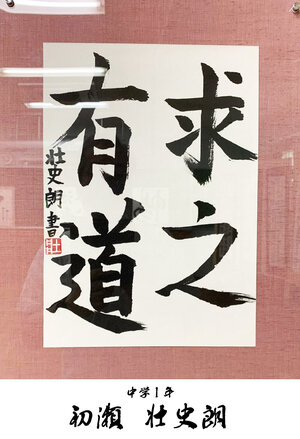 求之
有道
壮史朗書
中学1年
初瀬 壮史朗